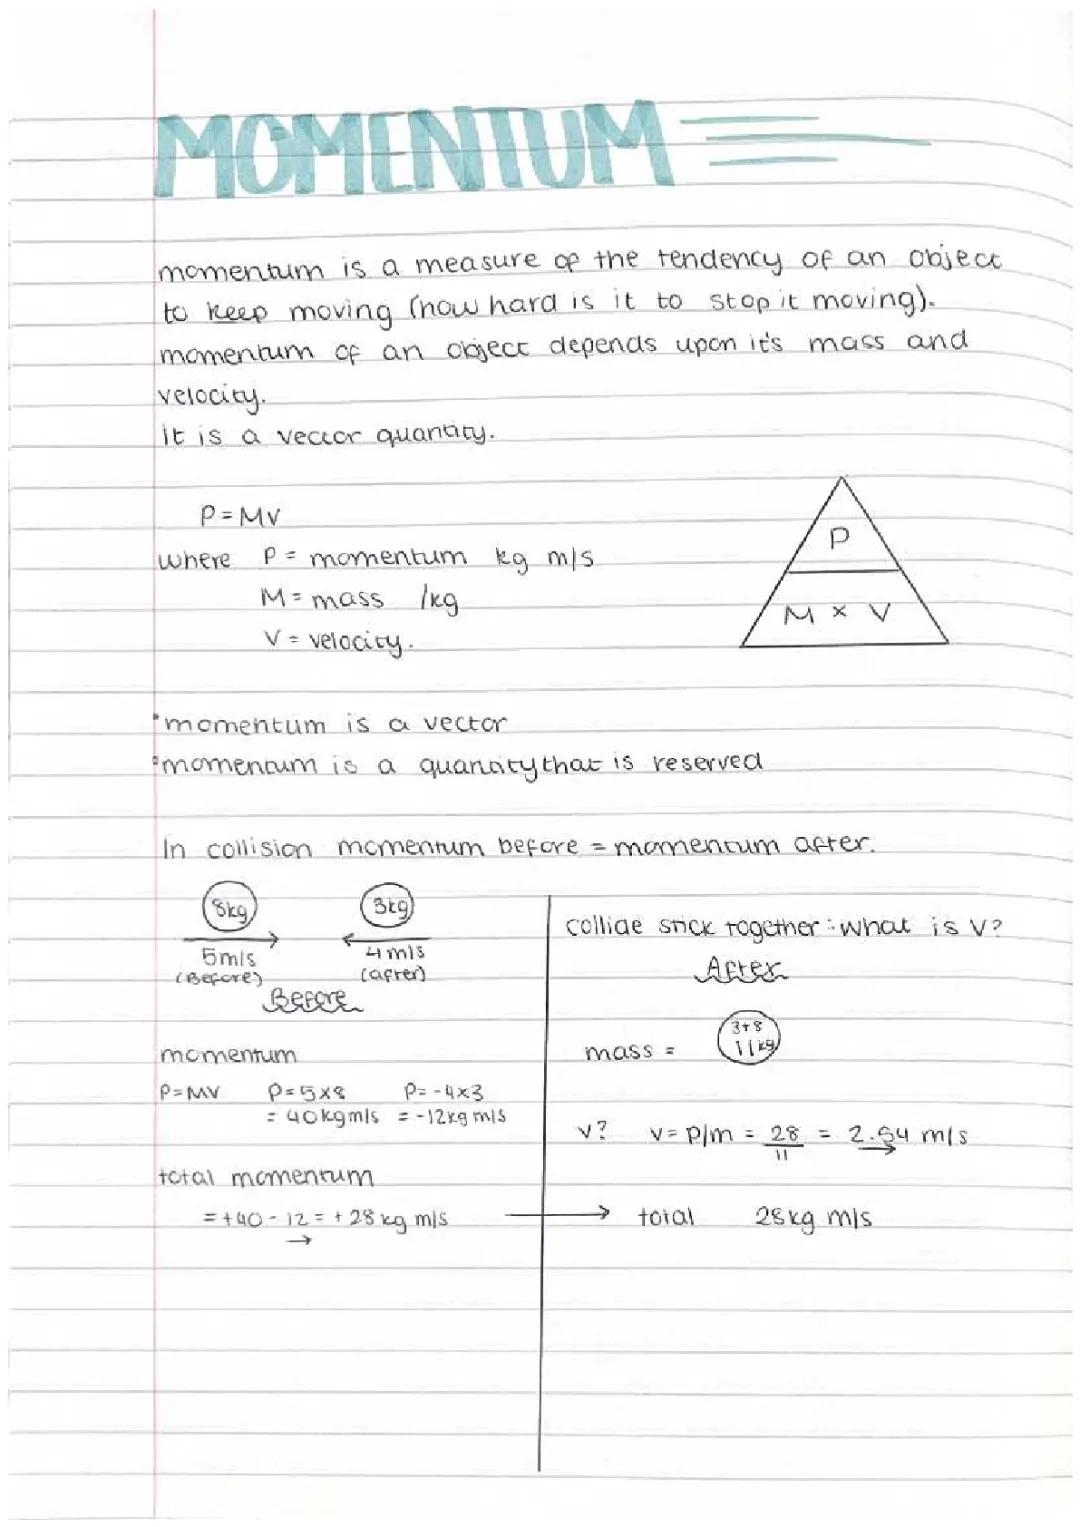 MOMENTUM
momentum is a measure of the tendency of an object
to keep moving (how hard is it to stop it moving).
momentum of an object depends upon it's mass and
velocity.
it is a vector quantity.
P = MV
where P = momentum kg m/s
M = mass /kg
V = velocity.
P
M × V
•momentum is a vector
•momentum is a quantity that is reserved
In collision momentum before = momentum after.
8kg
3kg
5m/s
4m/s
(Before)
(after)
Before
momentum
P=MV P=5×8 P= -4×3
= 40kgm/s = -12kg m/s
total momentum
= +40 - 12 = + 28 kg m/s
→
collide stick together : what is V?
After
mass = 3+8
11kg
V? V = P/m = 28 = 2.54 m/s
11 →
→ total 28kg m/s